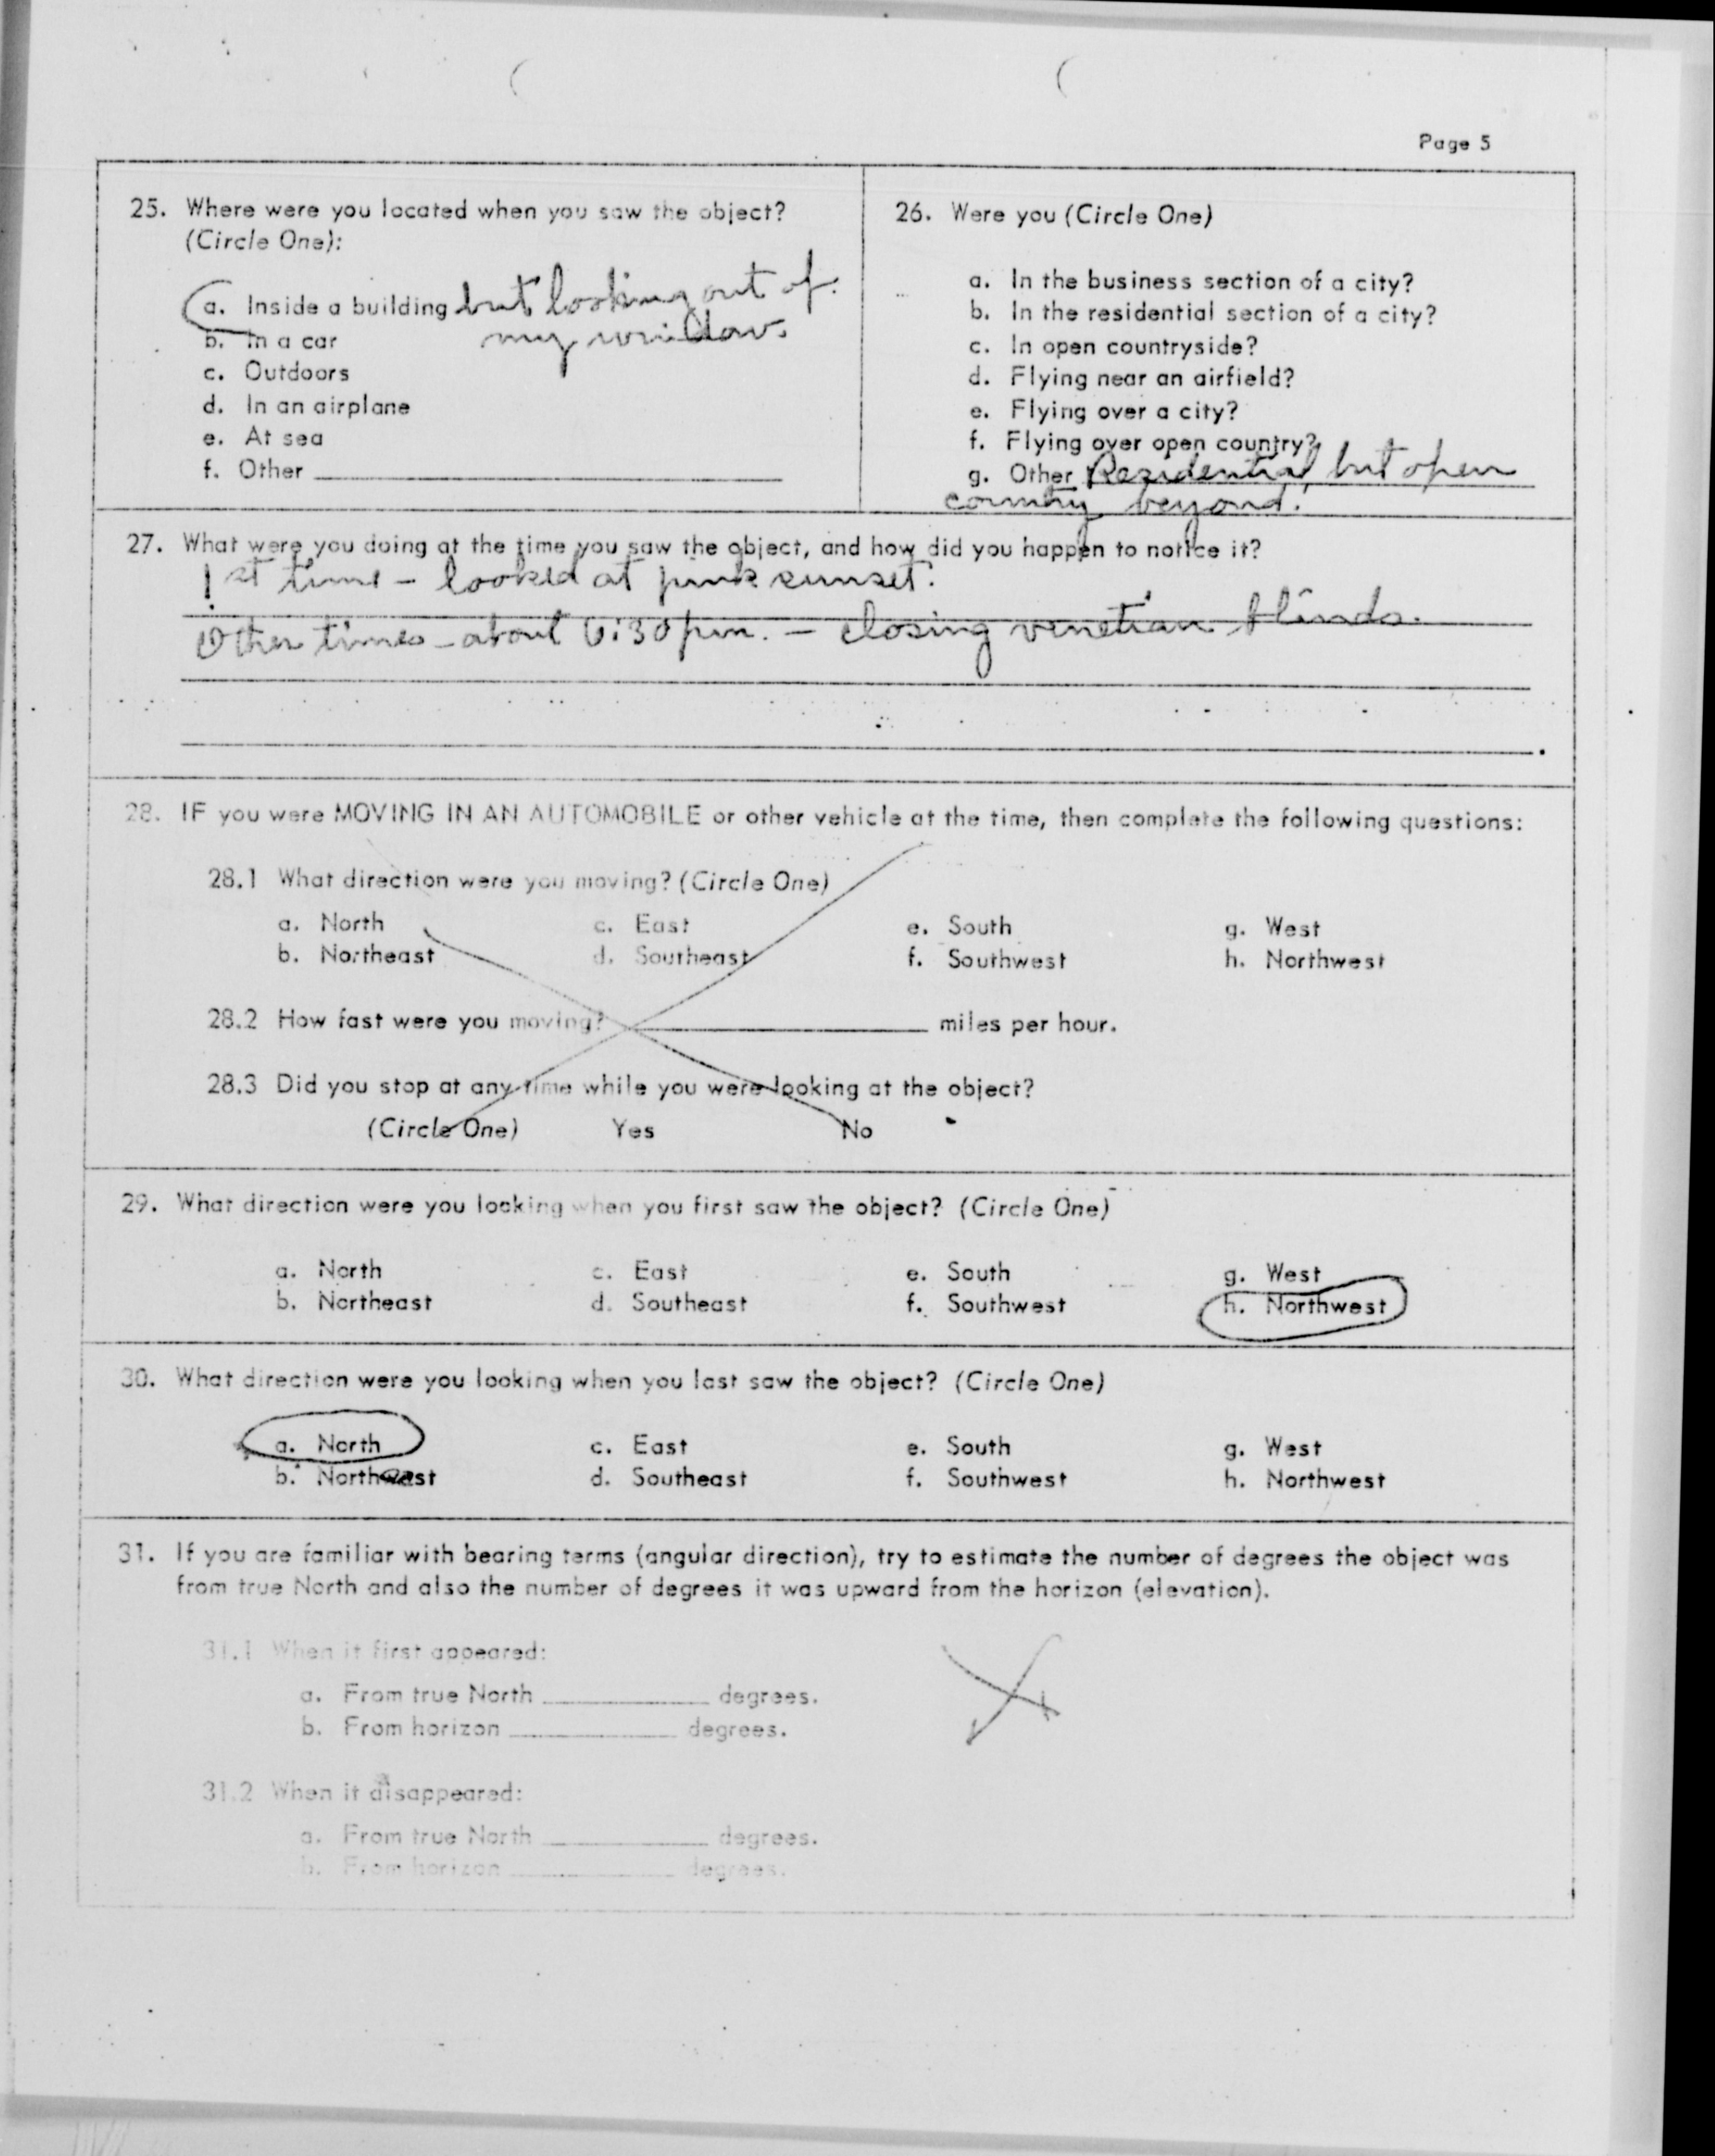 Page 5
25. Where were you located when you saw the object?
(Circle One):
a. Inside a building but looking out of
my window.
b. In a car
c. Outdoors
d. In an airplane
e. At sea
f. Other
26. Were you (Circle One)
a. In the business section of a city?
b. In the residential section of a city?
c. In open countryside?
d. Flying near an airfield?
e. Flying over a city?
f. Flying over open country?
g. Other Residential but open
country beyond.
27. What were you doing at the time you saw the object, and how did you happen to notice it?
1st time - looked at pink sunset.
Other times - about 6:30 pm. - closing venetian blinds.
28. IF you were MOVING IN AN AUTOMOBILE or other vehicle at the time, then complete the following questions:
28.1 What direction were you moving? (Circle One)
a. North c. East e. South g. West
b. Northeast d. Southeast f. Southwest h. Northwest
28.2 How fast were you moving? miles per hour.
28.3 Did you stop at any time while you were looking at the object?
(Circle One) Yes No
29. What direction were you looking when you first saw the object? (Circle One)
a. North c. East e. South g. West
b. Northeast d. Southeast f. Southwest h. Northwest
30. What direction were you looking when you last saw the object? (Circle One)
a. North c. East e. South g. West
b. Northeast d. Southeast f. Southwest h. Northwest
31. If you are familiar with bearing terms (angular direction), try to estimate the number of degrees the object was
from true North and also the number of degrees it was upward from the horizon (elevation).
31.1 When it first appeared:
a. From true North degrees.
b. From horizon degrees.
31.2 When it disappeared:
a. From true North degrees.
b. From horizon degrees.